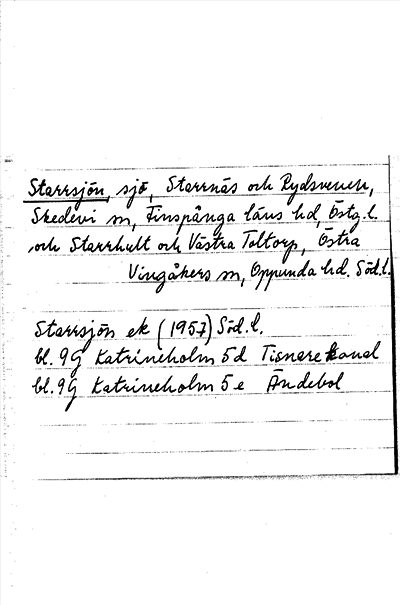 Starrsjön, sjö, Starrnäs och Rydsvenen,
Skedevi sn, Finspånga läns hd, Östg. l.
och Starrhult och Västra Toltorp, Östra
Vingåkers sn, Oppunda hd. Söd. l.
Starrsjön ek (1957) Söd. l.
bl. 9G Katrineholm 5d Tisnare kanal
bl. 9G Katrineholm 5e Ändebol